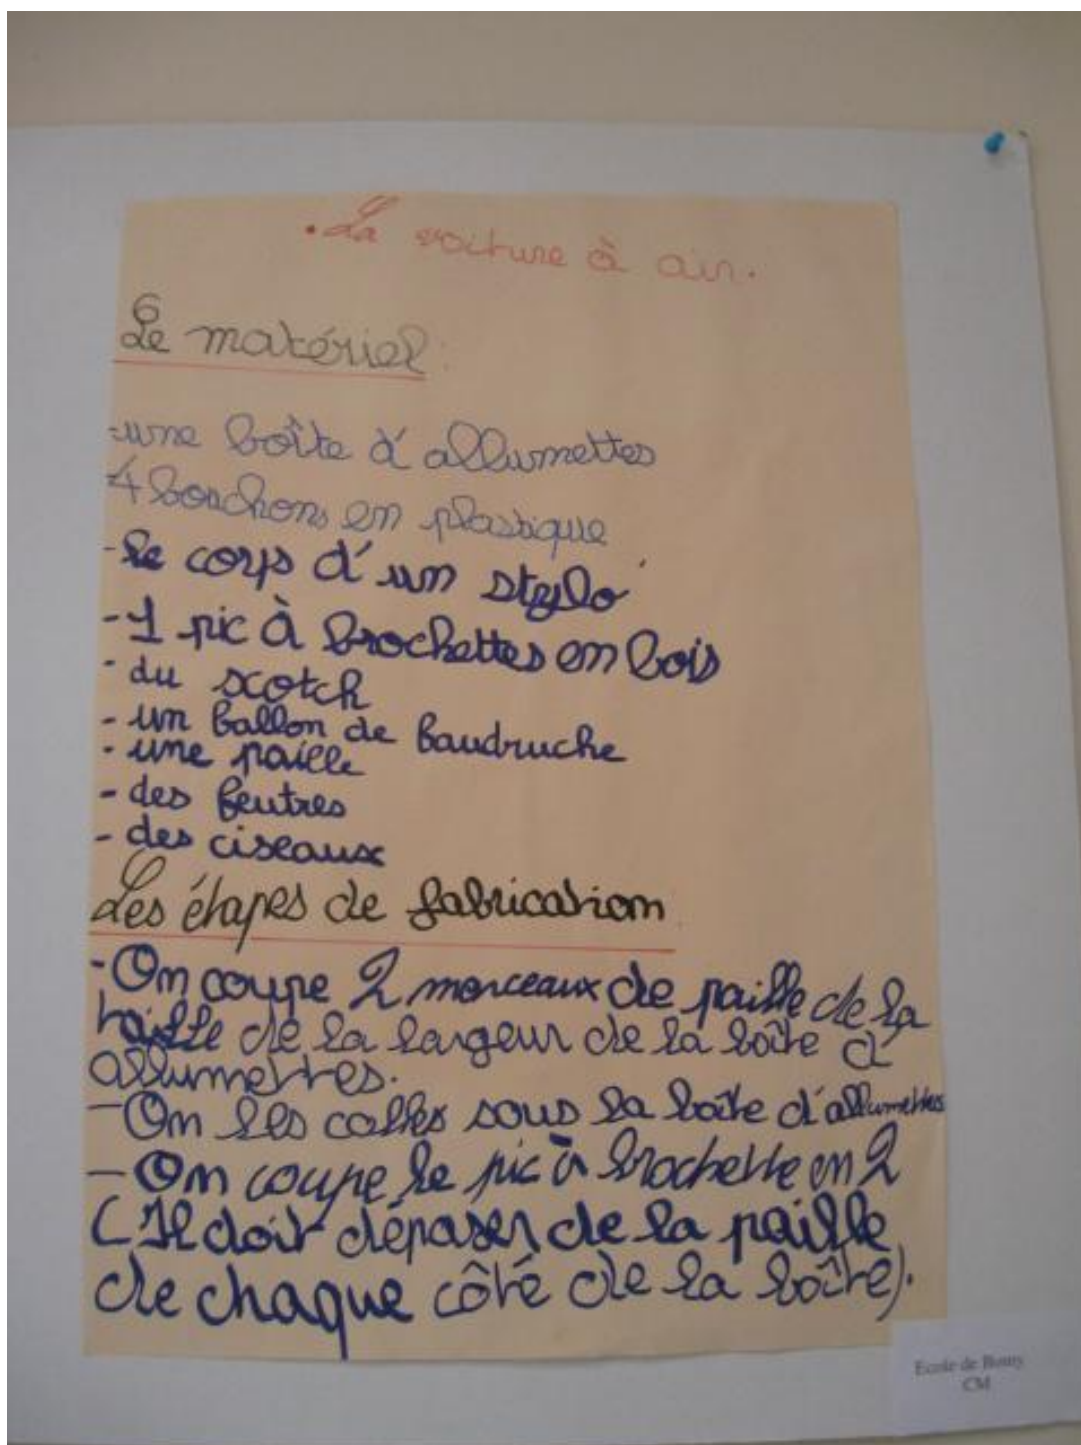 . La voiture à air.
Le matériel :
-une boîte d'allumettes
4 bouchons en plastique
-le corps d'un stylo
-1 pic à brochettes en bois
- du scotch
- un ballon de baudruche
- une paille
- des feutres
- des ciseaux
Les étapes de fabrication
-On coupe 2 morceaux de paille de la
taille de la largeur de la boîte d'
allumettes.
-On les colles sous la boîte d'allumettes
-On coupe le pic à brochette en 2
(Il doit dépaser de la paille
de chaque côté de la boîte).
Ecole de
CM